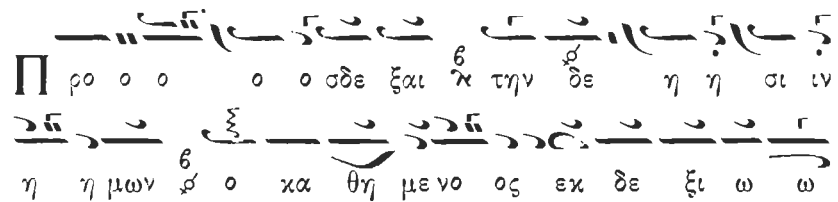 Προ ο ο ο ο σδε ξαι ϗ την δε η η σι ιν
η η μων ο κα θη με νο ος εκ δε ξι ω ω